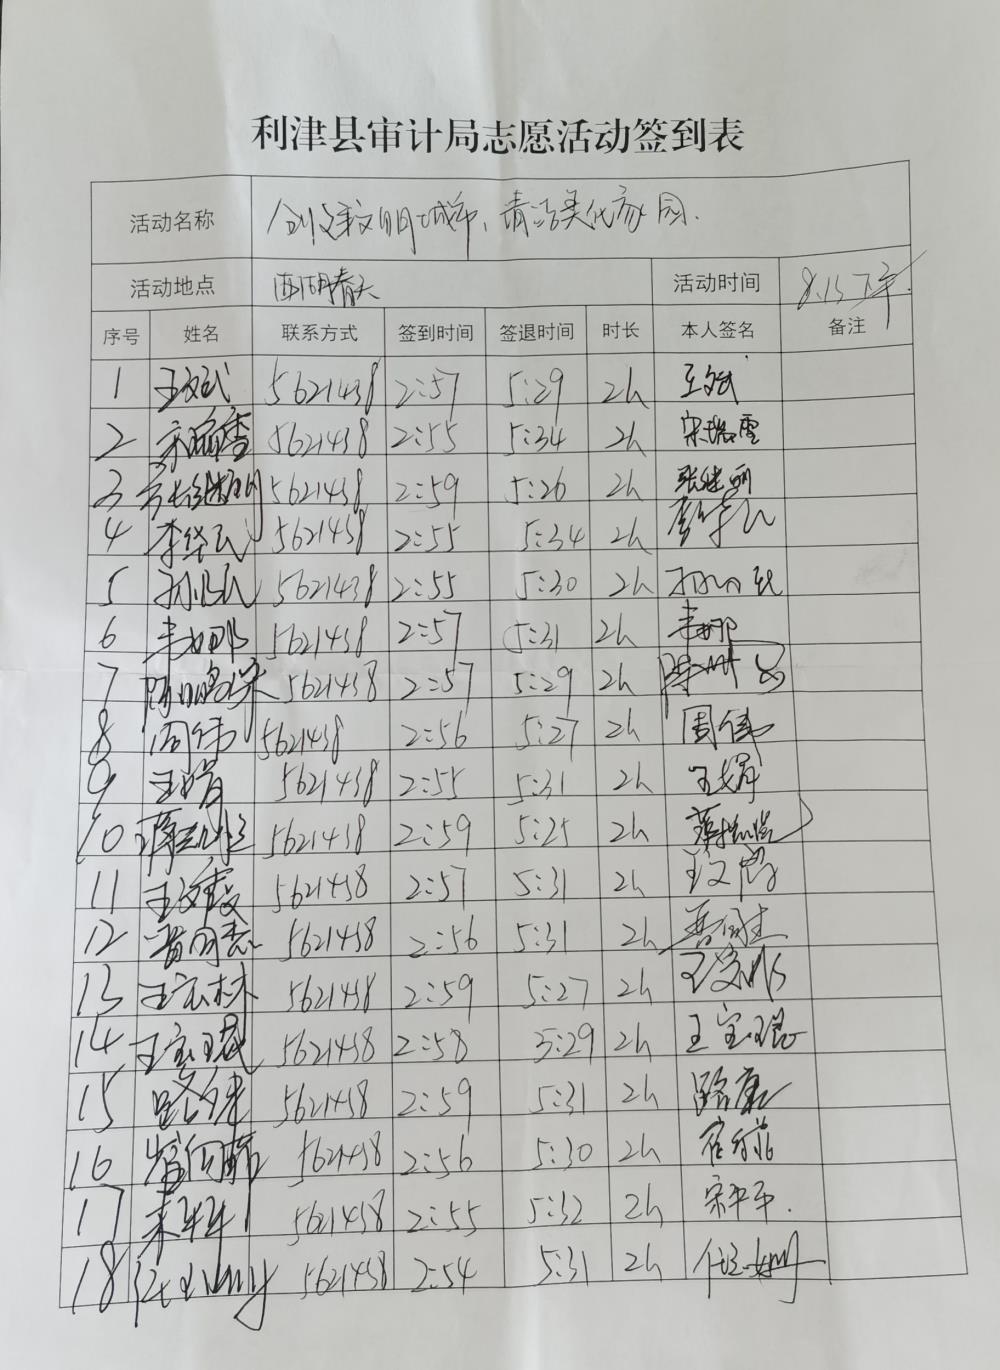 利津县审计局志愿活动签到表
活动名称 创建文明城市、清洁美化家园.
活动地点 西湖春天 活动时间 8.15下午
序号 姓名 联系方式 签到时间 签退时间 时长 本人签名 备注
1 王文武 5621438 2:57 5:29 2h 王文武
2 宋瑞雪 5621438 2:55 5:34 2h 宋瑞雪
3 张继明 5621438 2:59 5:26 2h
4 李华民 5621438 2:55 5:34 2h
5 5621438 2:55 5:30 2h
6 5621438 2:57 5:31 2h
7 5621438 2:57 5:29 2h
8 周伟 5621438 2:56 5:27 2h 周伟
9 王娟 5621438 2:55 5:31 2h 王娟
10 5621438 2:59 5:25 2h
11 王文霞 5621438 2:57 5:31 2h 王文霞
12 5621438 2:56 5:31 2h
13 王宏林 5621438 2:59 5:27 2h
14 王宝琨 5621438 2:58 5:29 2h 王宝琨
15 5621438 2:59 5:31 2h 路康
16 5621438 2:56 5:30 2h
17 宋平平 5621438 2:55 5:32 2h 宋平平.
18 5621438 2:54 5:31 2h